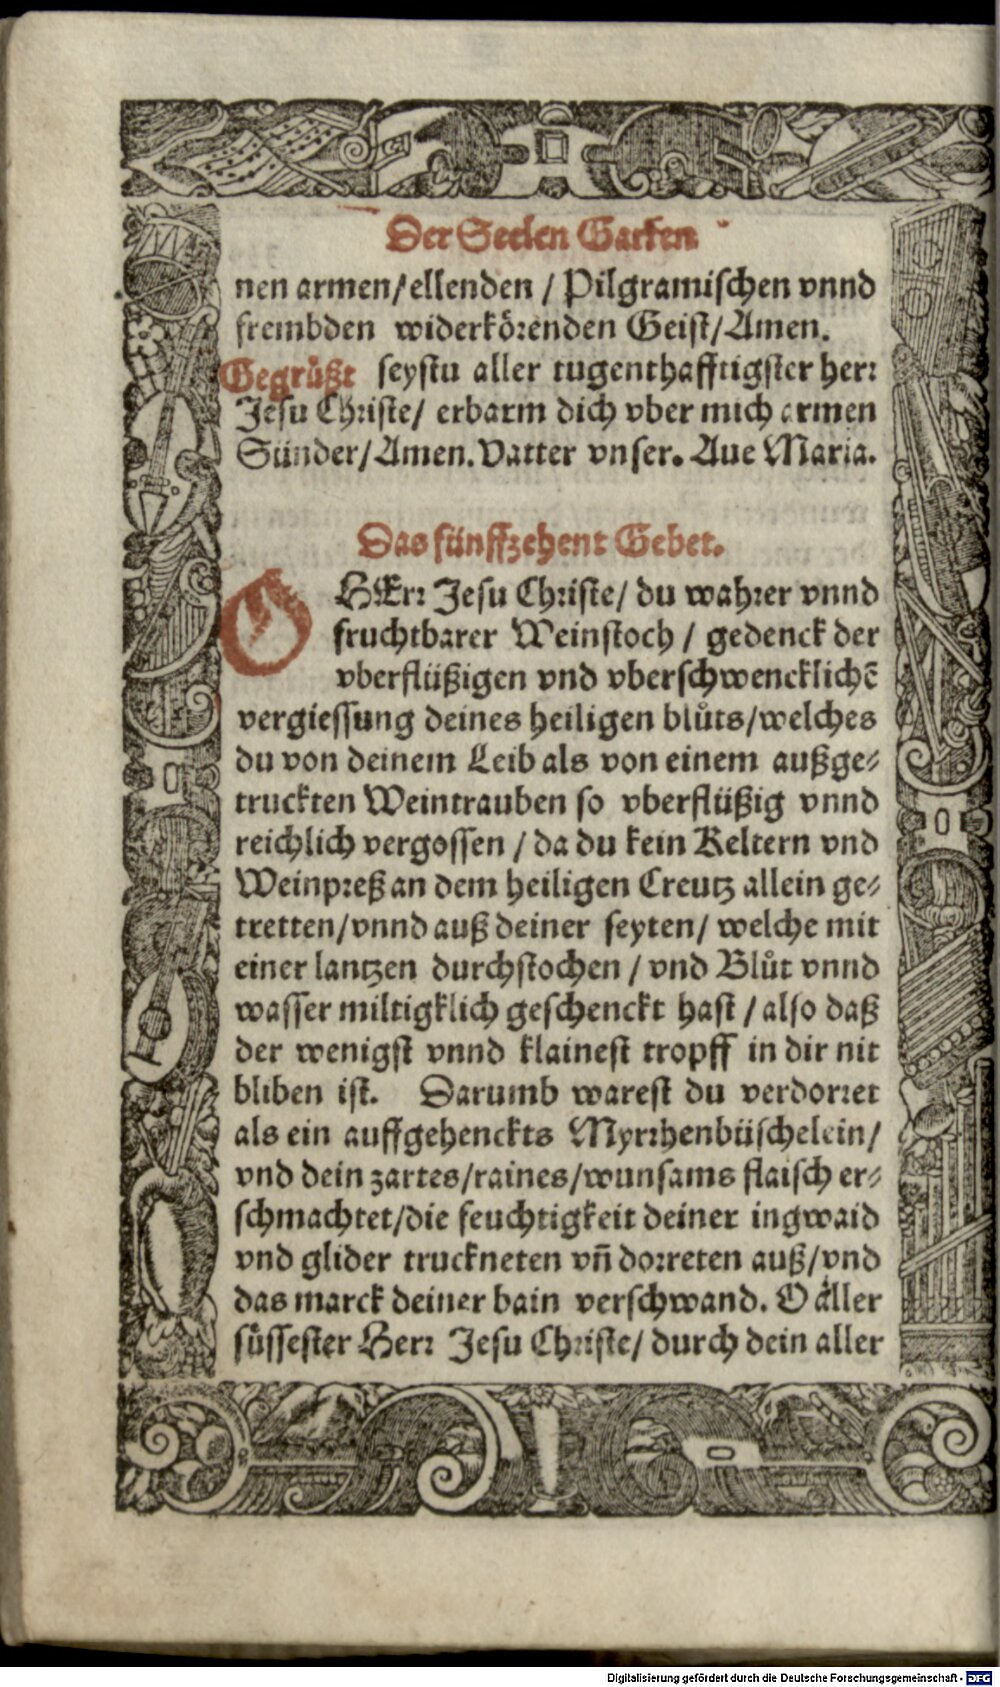 Der Seelen Garten
nen armen/ellenden / Pilgramischen vnnd
frembden widerkörenden Geist/Amen.
Gegrüßt seystu aller tugenthafftigster herr
Jesu Christe/ erbarm dich vber mich armen
Sünder/Amen. Vatter vnser. Aue Maria.
Das fünffzehent Gebet.
O HErr Jesu Christe/ du wahrer vnnd
fruchtbarer Weinstoch / gedenck der
vberflüßigen vnd vberschwencklichẽ
vergiessung deines heiligen blůts/welches
du von deinem Leib als von einem außge-
truckten Weintrauben so vberflüßig vnnd
reichlich vergossen / da du kein Keltern vnd
Weinpreß an dem heiligen Creutz allein ge-
tretten/vnnd auß deiner seyten/ welche mit
einer lantzen durchstochen / vnd Blůt vnnd
wasser miltigklich geschenckt hast / also daß
der wenigst vnnd klainest tropff in dir nit
bliben ist. Darumb warest du verdorret
als ein auffgehenckts Myrrhenbüschelein/
vnd dein zartes/raines/wunsams flaisch er-
schmachtet/die feuchtigkeit deiner ingwaid
vnd glider truckneten vñ dorreten auß/vnd
das marck deiner bain verschwand. O aller
süssester Herr Jesu Christe/ durch dein aller
Digitalisierung gefördert durch die Deutsche Forschungsgemeinschaft - DFG